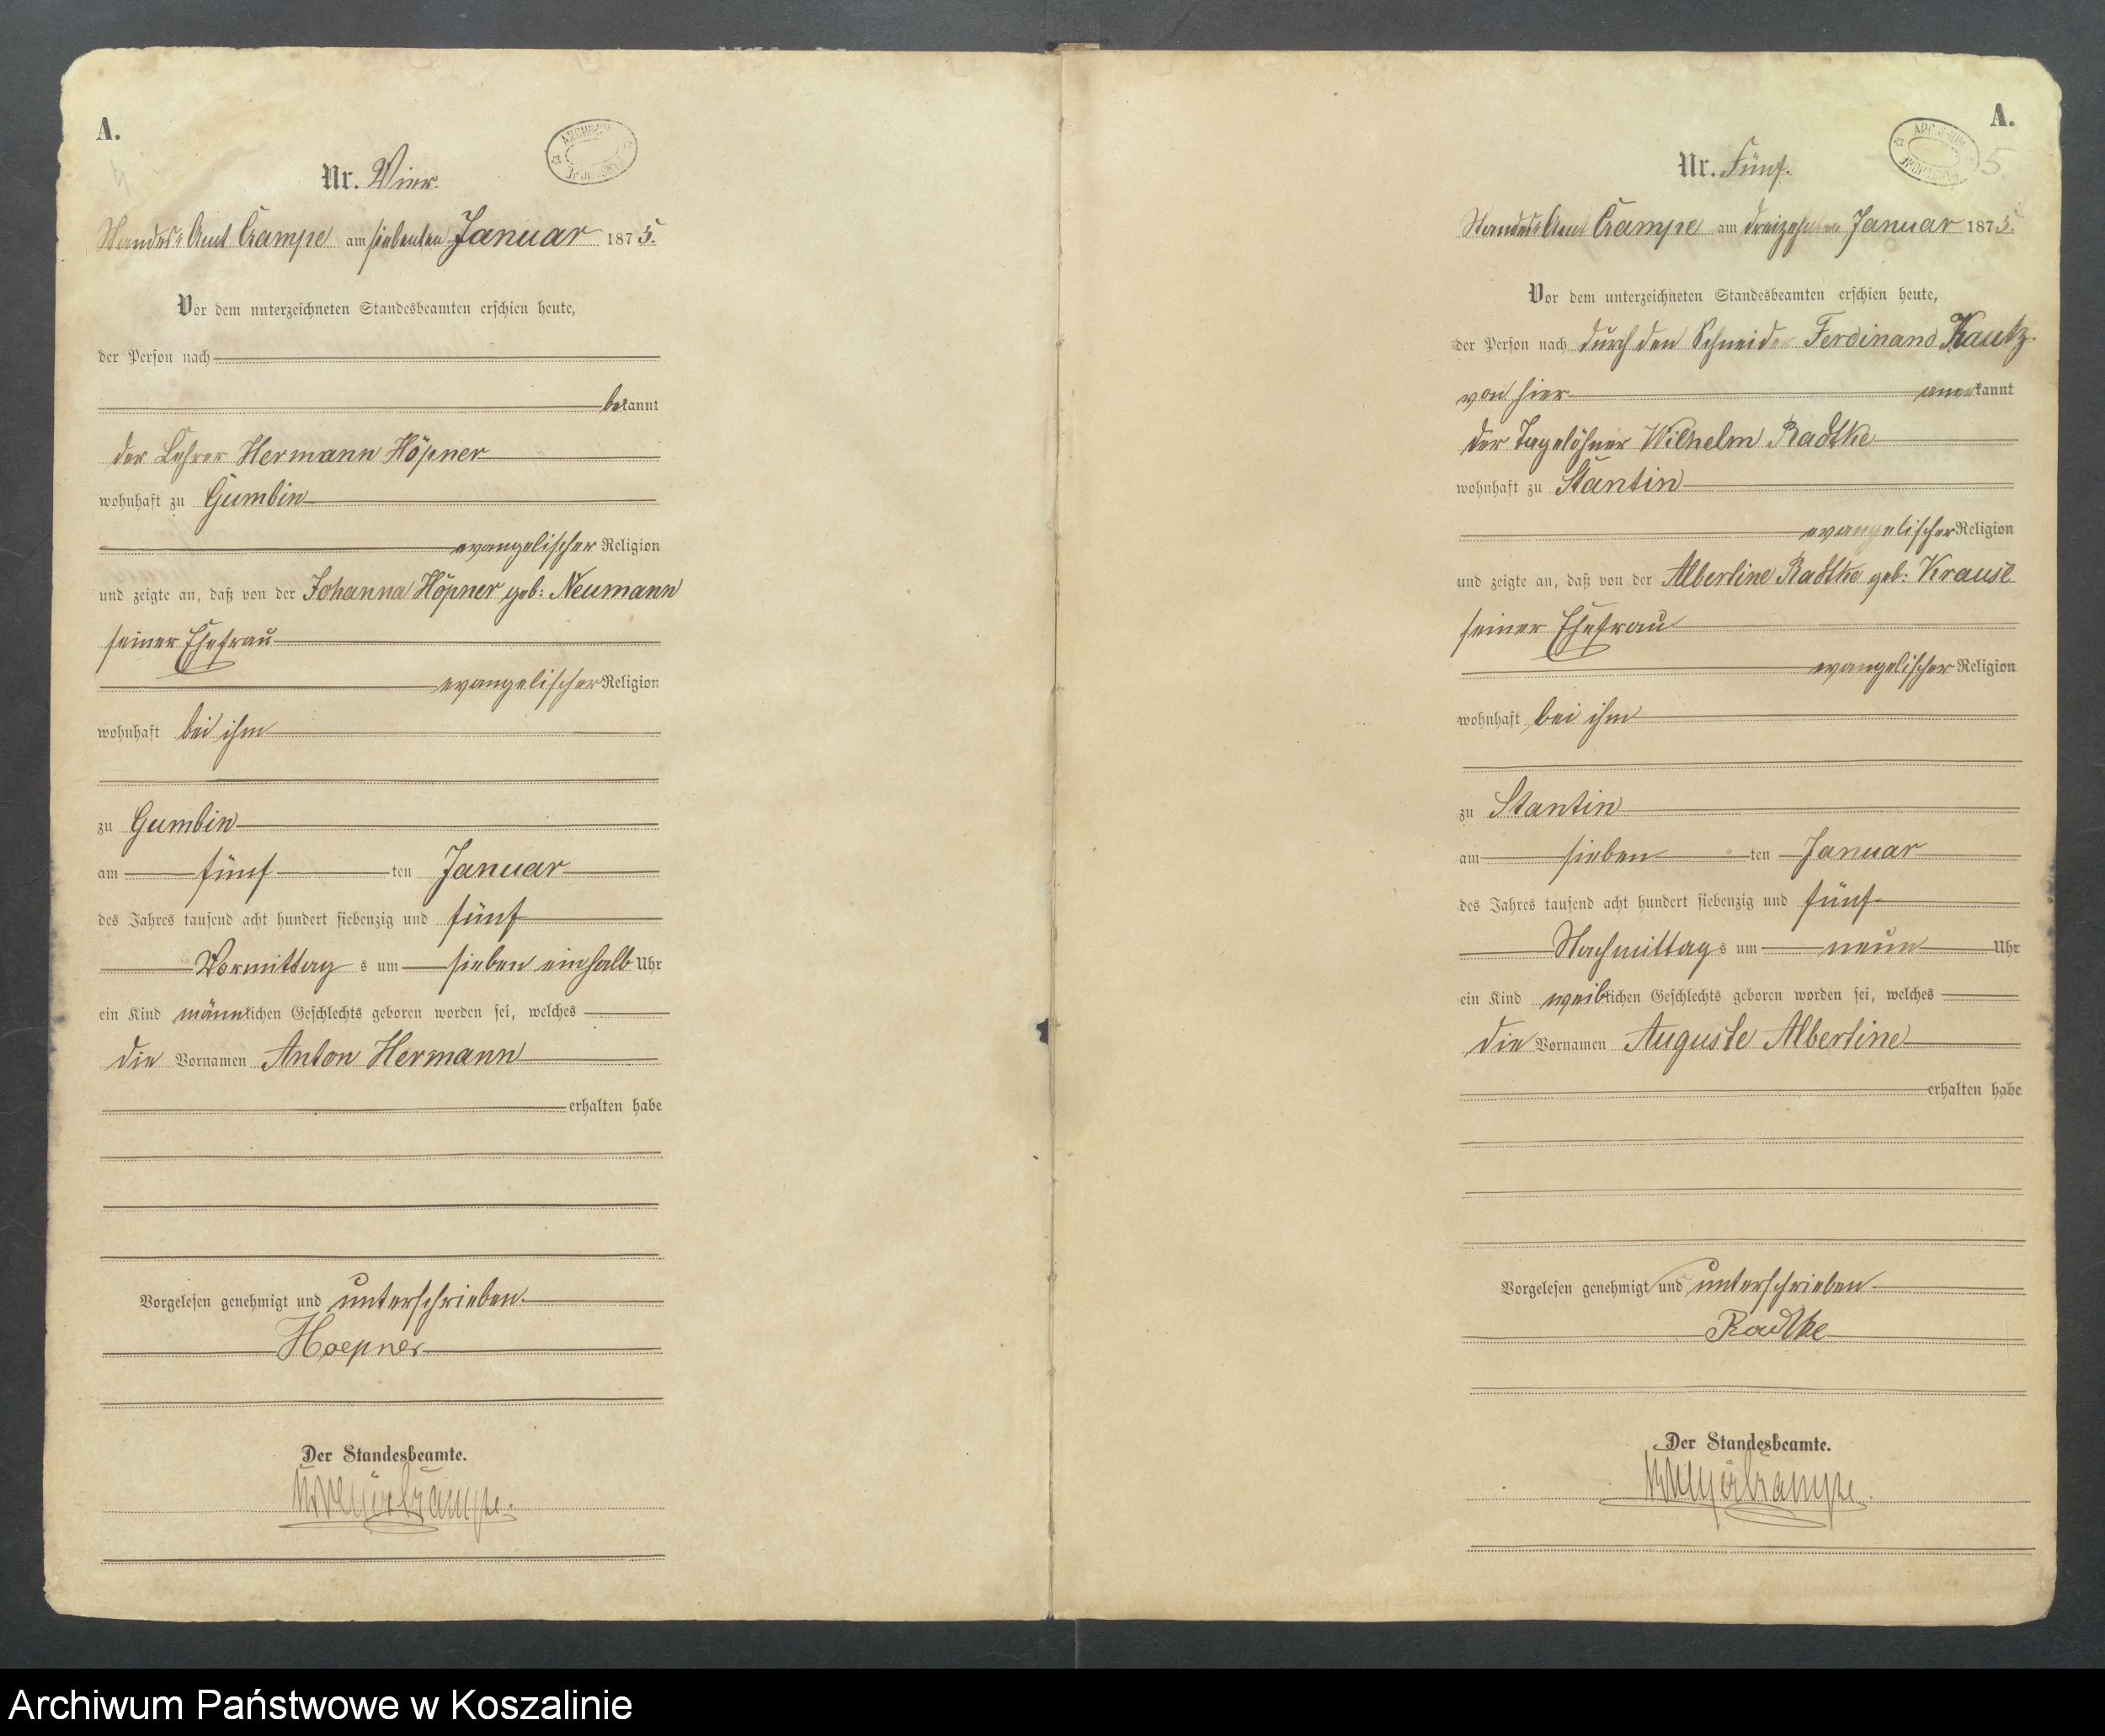 A.
Nr. Vier.
Standes-Amt Crampe am siebenten Januar 1875.
Vor dem unterzeichneten Standesbeamten erschien heute,
der Person nach
bekannt
der Lehrer Hermann Höpner
wohnhaft zu Gumbin
evangelischer Religion
und zeigte an, daß von der Johanna Höpner geb: Neumann
seiner Ehefrau
evangelischer Religion
wohnhaft bei ihm
zu Gumbin
am fünf ten Januar
des Jahres tausend acht hundert siebenzig und fünf
Vormittag s um sieben einhalb Uhr
ein Kind männlichen Geschlechts geboren worden sei, welches
die Vornamen Anton Hermann
erhalten habe
Vorgelesen genehmigt und unterschrieben.
Hoepner
Der Standesbeamte.
A.
5
Nr. Fünf.
Standes-Amt Crampe am dreizehnten Januar 1875.
Vor dem unterzeichneten Standesbeamten erschien heute,
der Person nach durch den Schneider Ferdinand Kautz.
von hier anerkannt
der Tagelöhner Wilhelm Radtke
wohnhaft zu Stantin
evangelischer Religion
und zeigte an, daß von der Albertine Radtke geb: Krause
seiner Ehefrau
evangelischer Religion
wohnhaft bei ihm
zu Stantin
am sieben ten Januar
des Jahres tausend acht hundert siebenzig und fünf
Nachmittag s um neun Uhr
ein Kind weiblichen Geschlechts geboren worden sei, welches
die Vornamen Auguste Albertine
erhalten habe
Vorgelesen genehmigt und unterschrieben
Radtke
Der Standesbeamte.
Archiwum Państwowe w Koszalinie